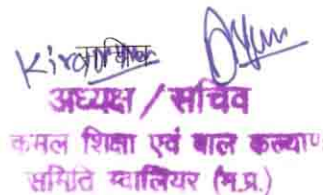 अध्यक्ष / सचिव
कमल शिक्षा एवं बाल कल्याण
समिति ग्वालियर (म.प्र.)